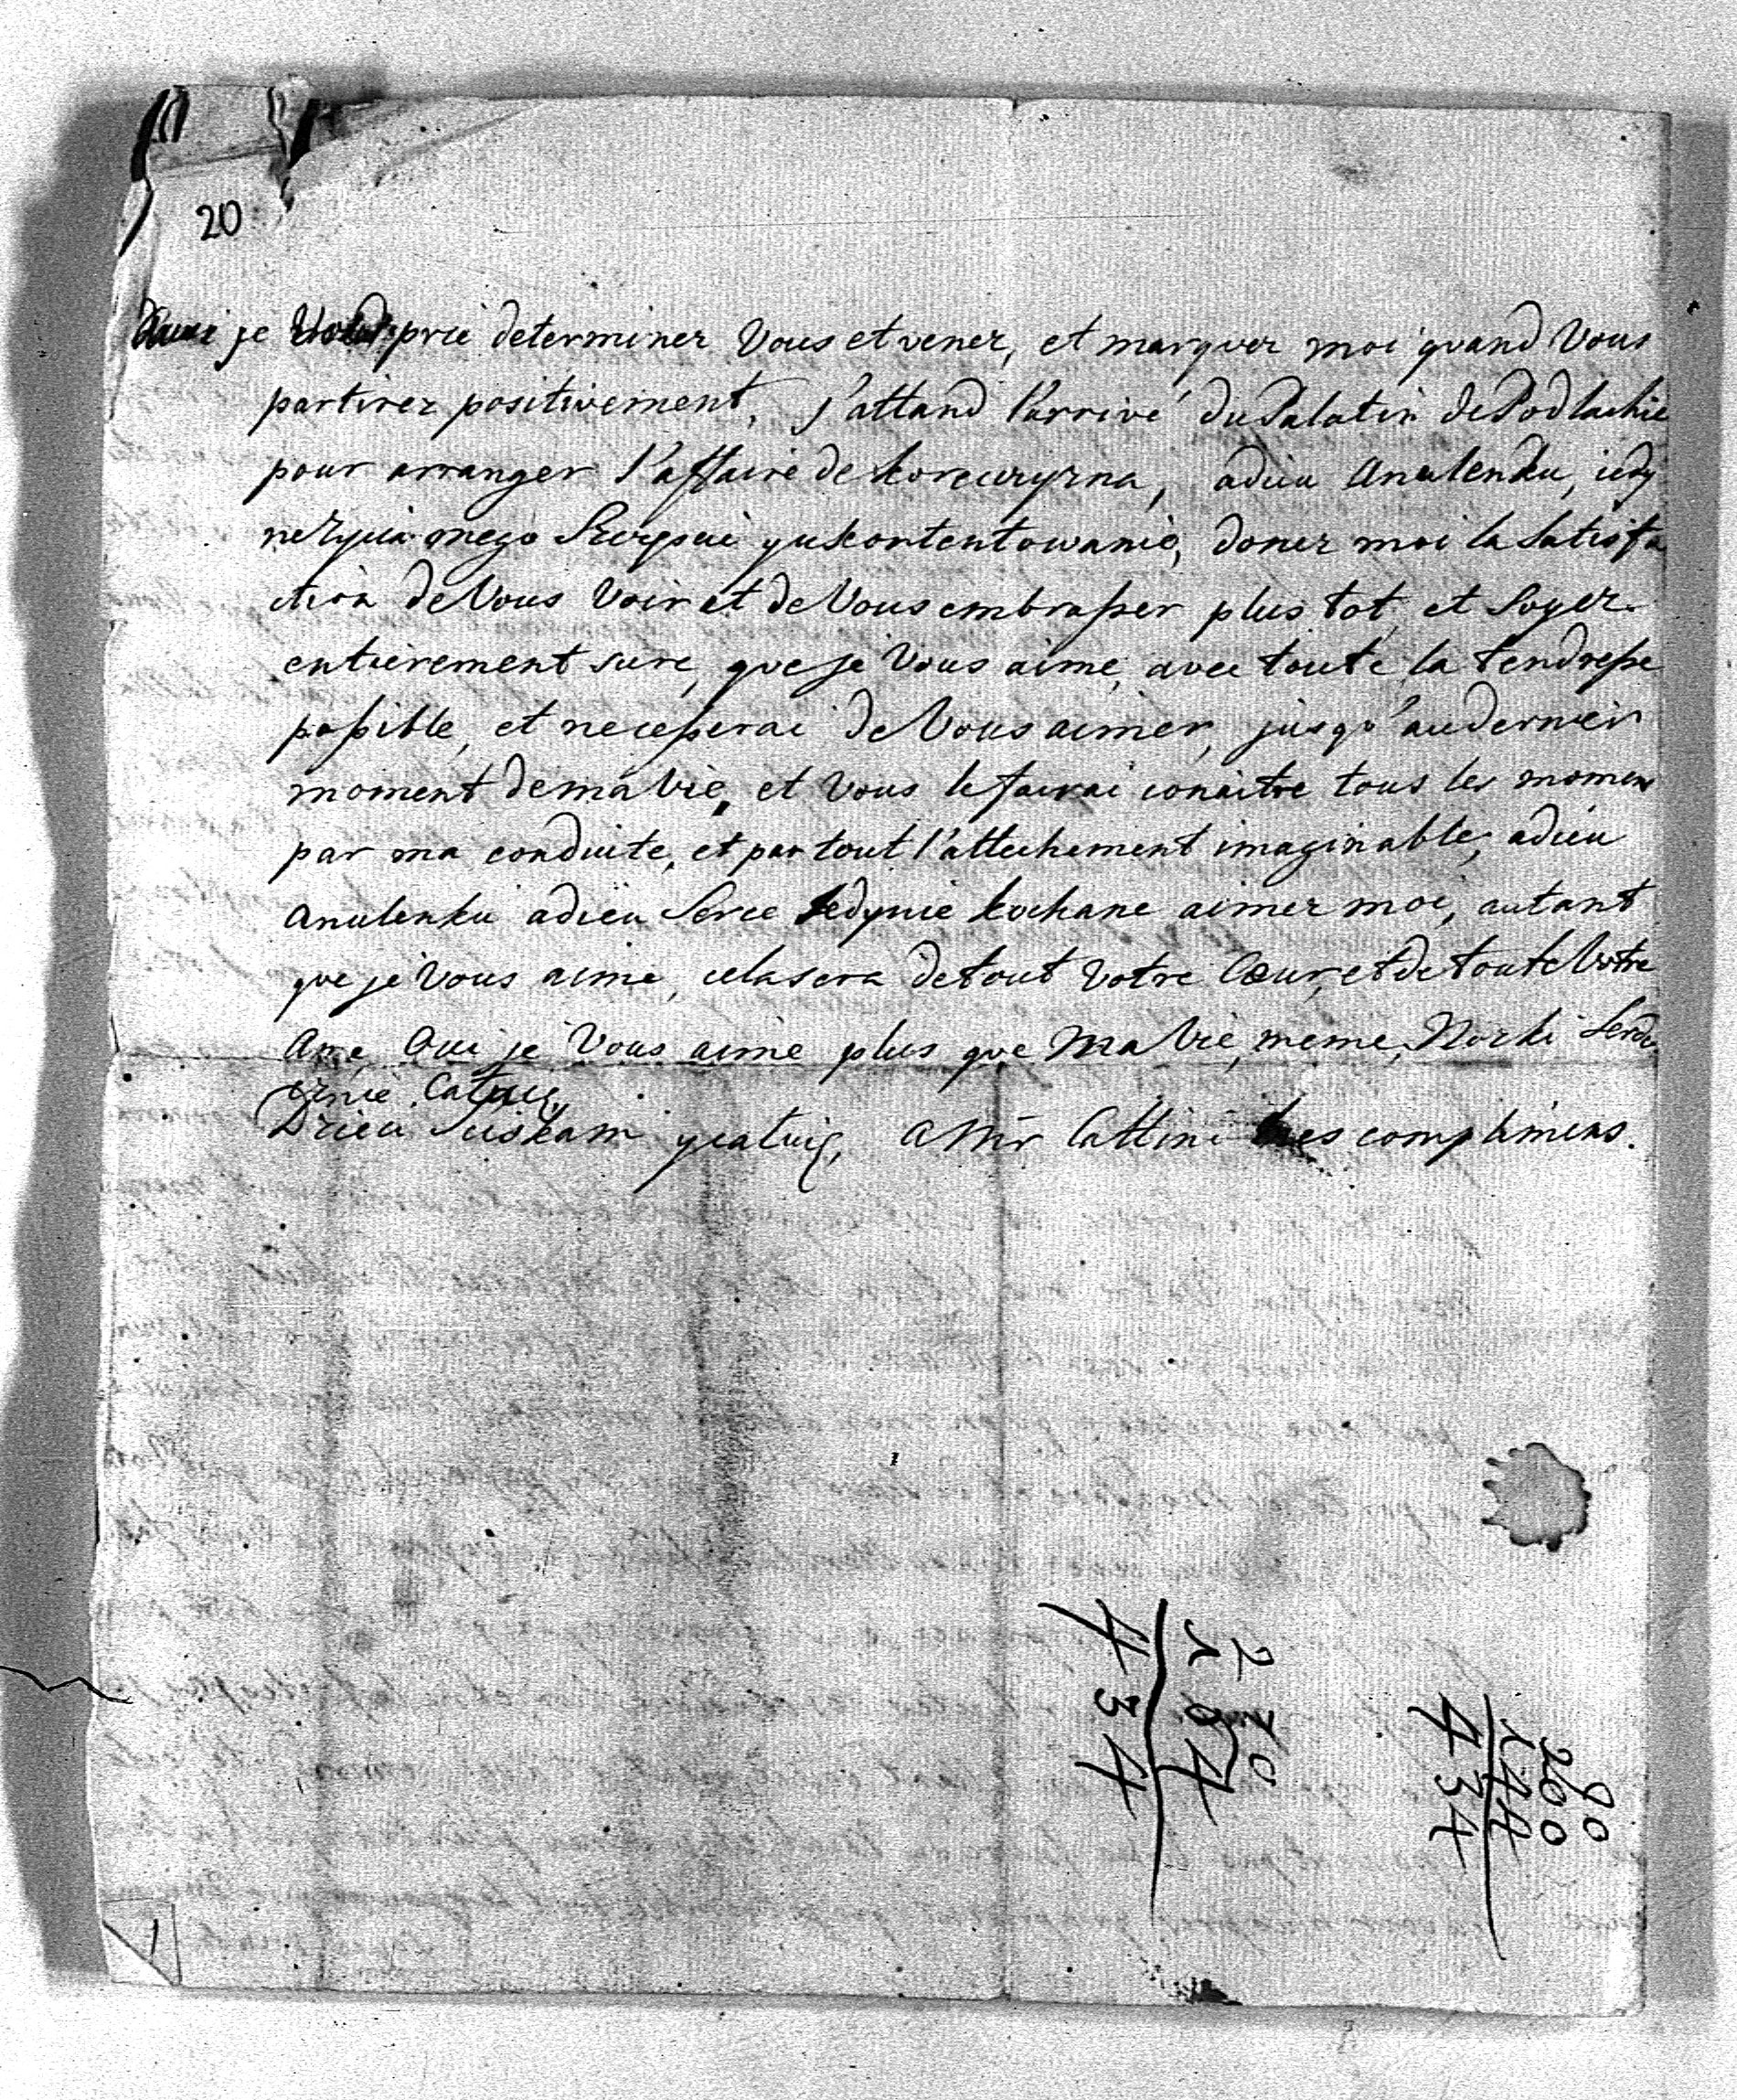 20
je Vous prie determiner Vous et vener, et marquer moi quand Vous
partirez positivement, j'attand l'arrivé du Palatin de Podlachie
pour arranger l'affaire de Korczyzna, adieu Anulenku, iedy
ne zycia mego Szczęscie y uskontentowanie, donez moi la satisfa
ction de Vous Voir et de Vous embrasser plus tot, et Soyez
entierement sure, que je Vous aime, avec toute la tendresse
possible, et ne cesserai de Vous aimer, jusqo' au dernier
moment de ma vie, et Vous le fairai conaitre tous les momens
par ma conduite, et par tout l'attechement imaginable, adieu
Anulenku adieu Serce Jedynie kochane aimez moi, autant
que je Vous aime, cela sera de tout Votre Cœur, et de toute Votre
Ame, Oui je Vous aime plus que Ma Vie, meme, Nozki Serde
cznie Całuię,
Dzieci Sciskam y całuię, a Mr Cattini mes complimens.
2 10
1 0 4
4 3 4
90
200
144
4 3 4